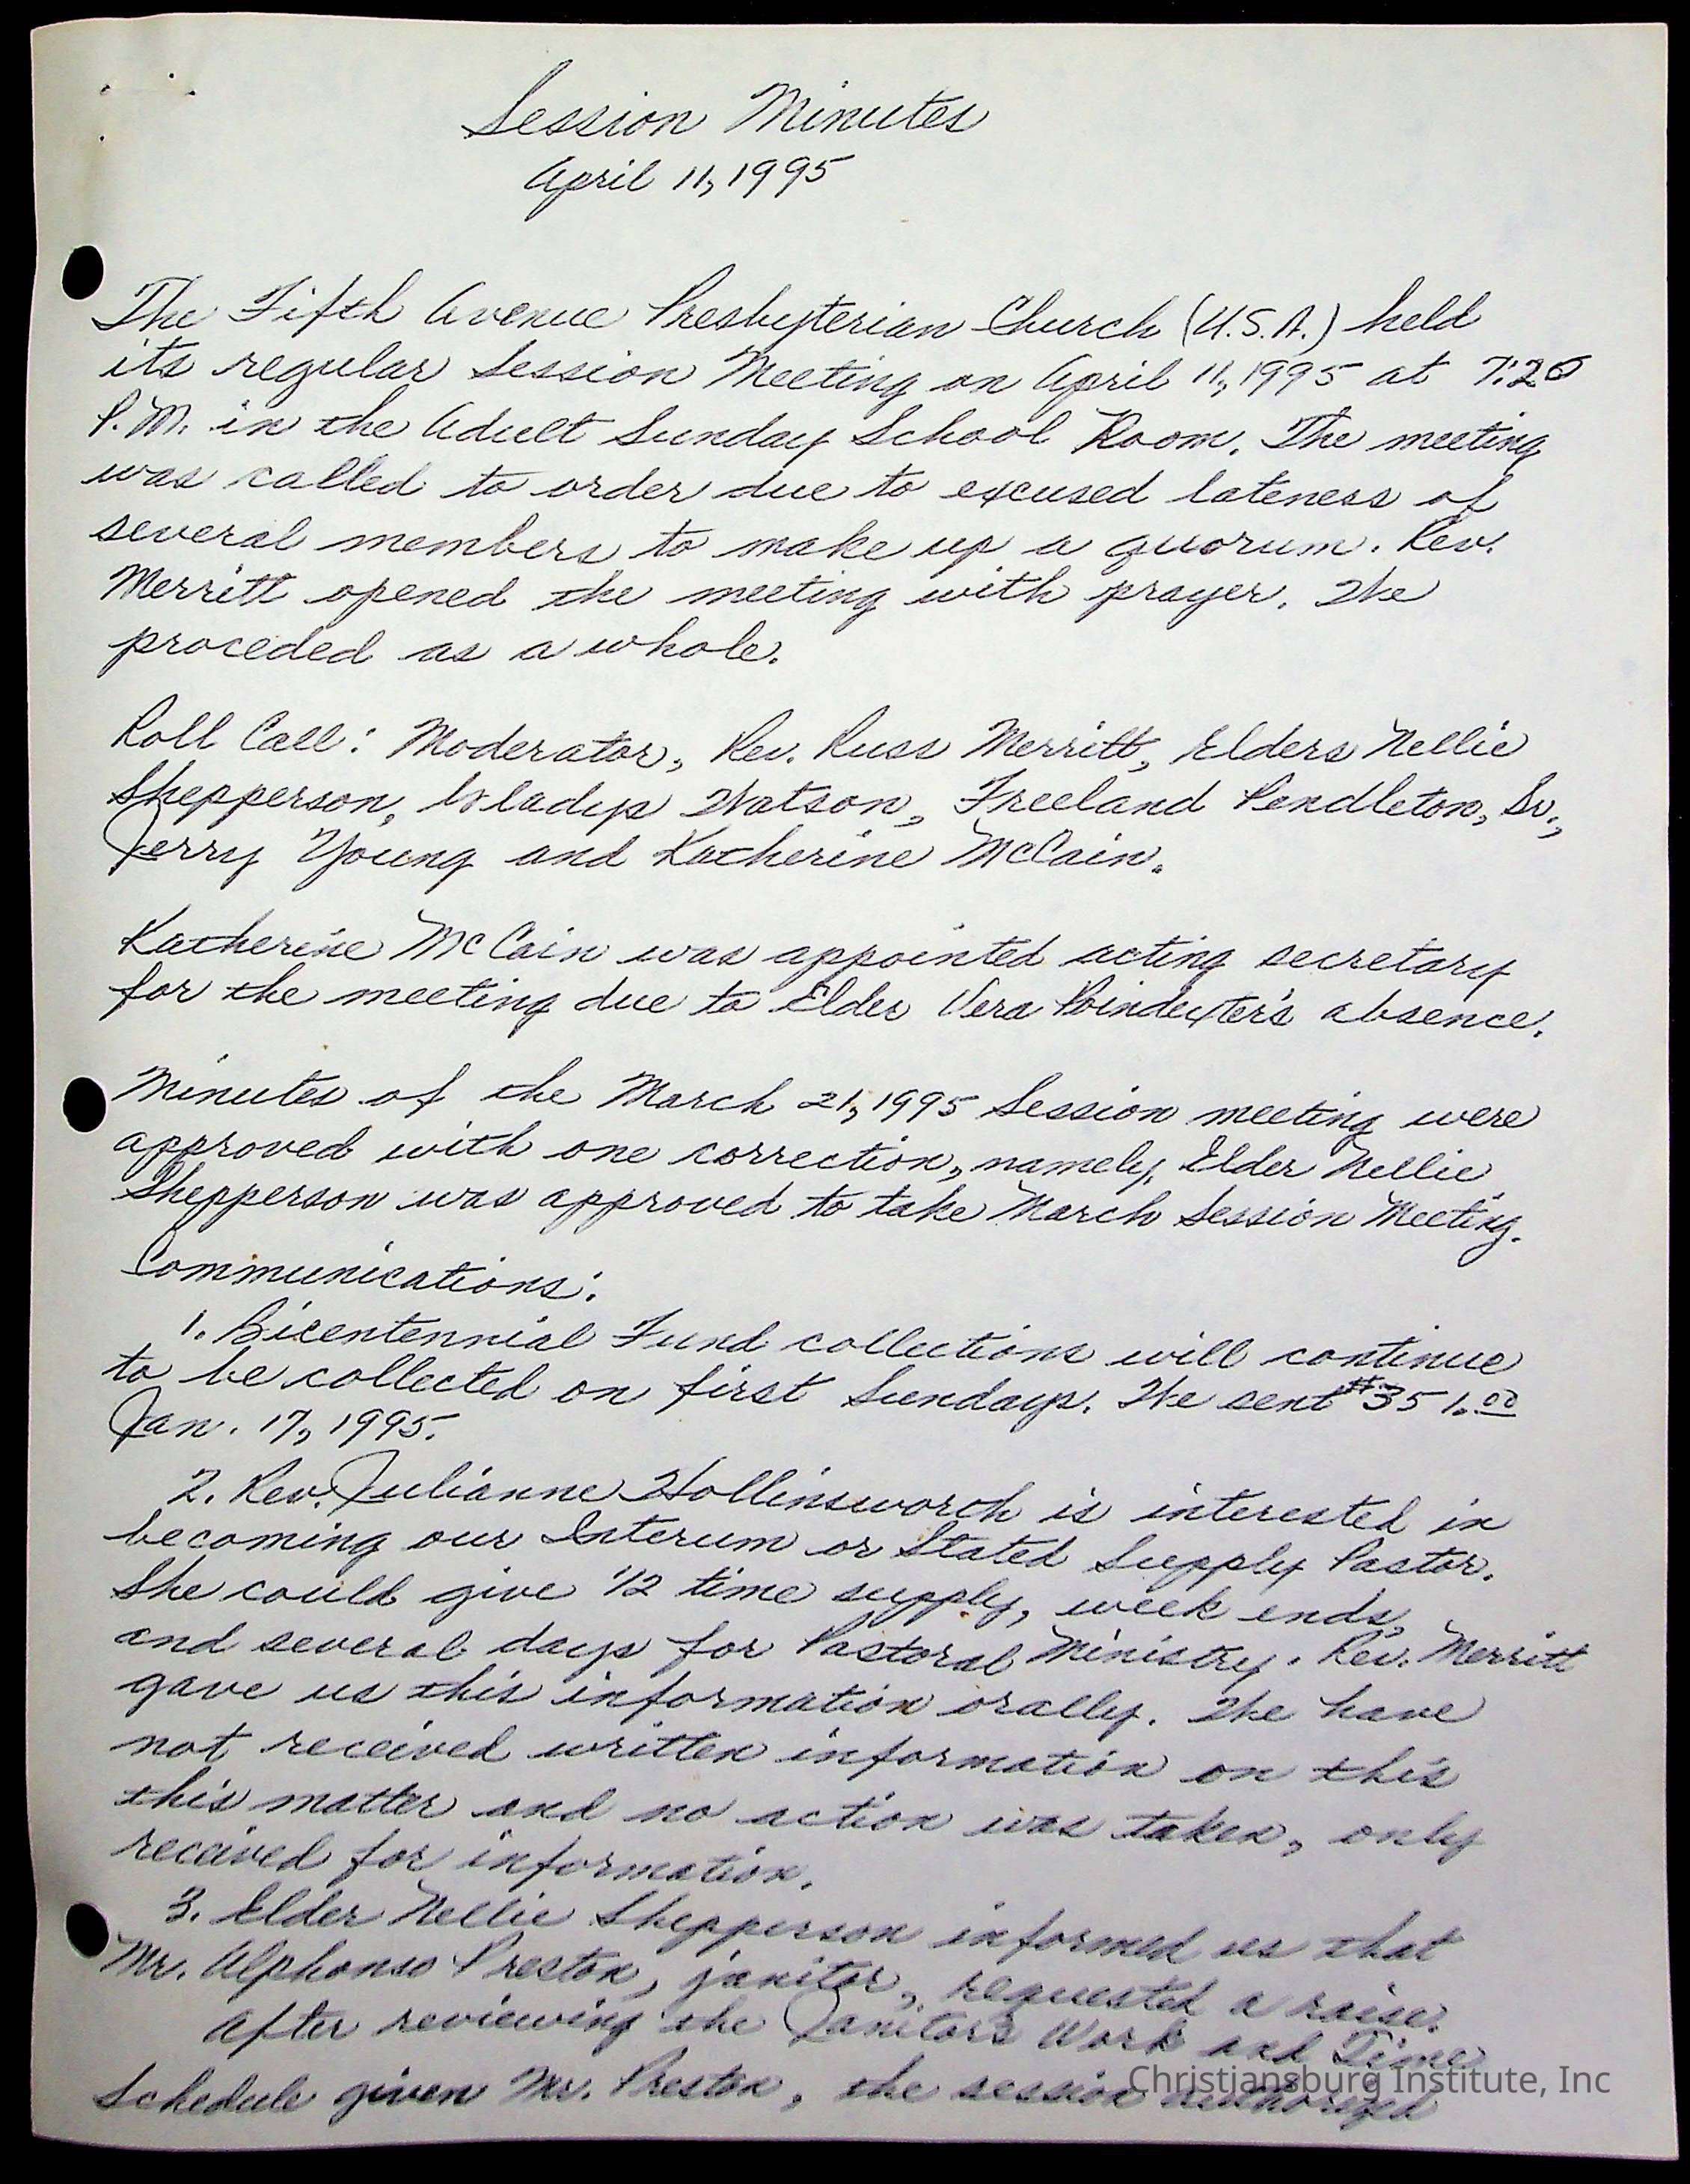 Session Minutes
April 11, 1995
The Fifth Avenue Presbyterian Church (U.S.A.) held
its regular Session Meeting on April 11, 1995 at 7:20
P.M. in the Adult Sunday School Room. The meeting
was called to order due to excused lateness of
several members to make up a quorum. Rev.
Merritt opened the meeting with prayer. We
proceded as a whole.
Roll Call: Moderator, Rev. Russ Merritt, Elders Nellie
Shepperson, Gladys Watson, Freeland Pendleton, Sr.,
Jerry Young and Katherine McCain.
Katherine McCain was appointed acting secretary
for the meeting due to Elder Vera Poindexter's absence.
Minutes of the March 21, 1995 Session meeting were
approved with one correction, namely, Elder Nellie
Shepperson was approved to take March Session Meeting.
Communications:
1. Bicentennial Fund collections will continue
to be collected on first Sundays. We sent $351.00
Jan. 17, 1995.
2. Rev. Julianne Hollinsworth is interested in
becoming our Interum or Stated Supply Pastor.
She could give 1/2 time supply, week ends,
and several days for Pastoral Ministry. Rev. Merritt
gave us this information orally. We have
not received written information on this
this matter and no action was taken, only
received for information.
3. Elder Nellie Shepperson informed us that
Mr. Alphonso Preston, janitor, requested a raise.
After reviewing the Janitor's Work and Time
Schedule given Mr. Preston, the session authorized
Christiansburg Institute, Inc